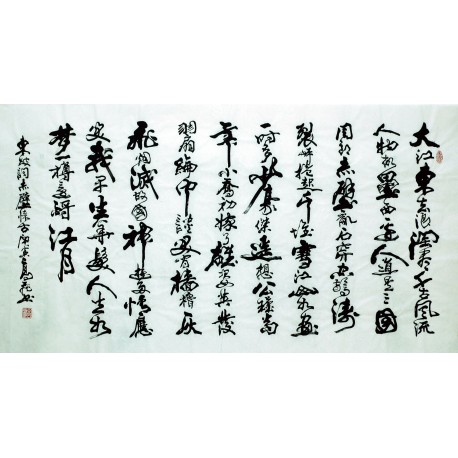 大江東去浪淘盡千古風流
人物故壘西邊人道是三國
周郎赤壁亂石穿空驚濤
裂岸捲起千堆雪江山如畫
一時多少豪傑遙想公瑾當
年小喬初嫁了雄姿英發
羽扇綸巾談笑間檣櫓灰
飛烟滅故國神遊多情應
笑我早生華髮人生如
夢一樽還酹江月
東坡詞赤壁懷古庚寅書